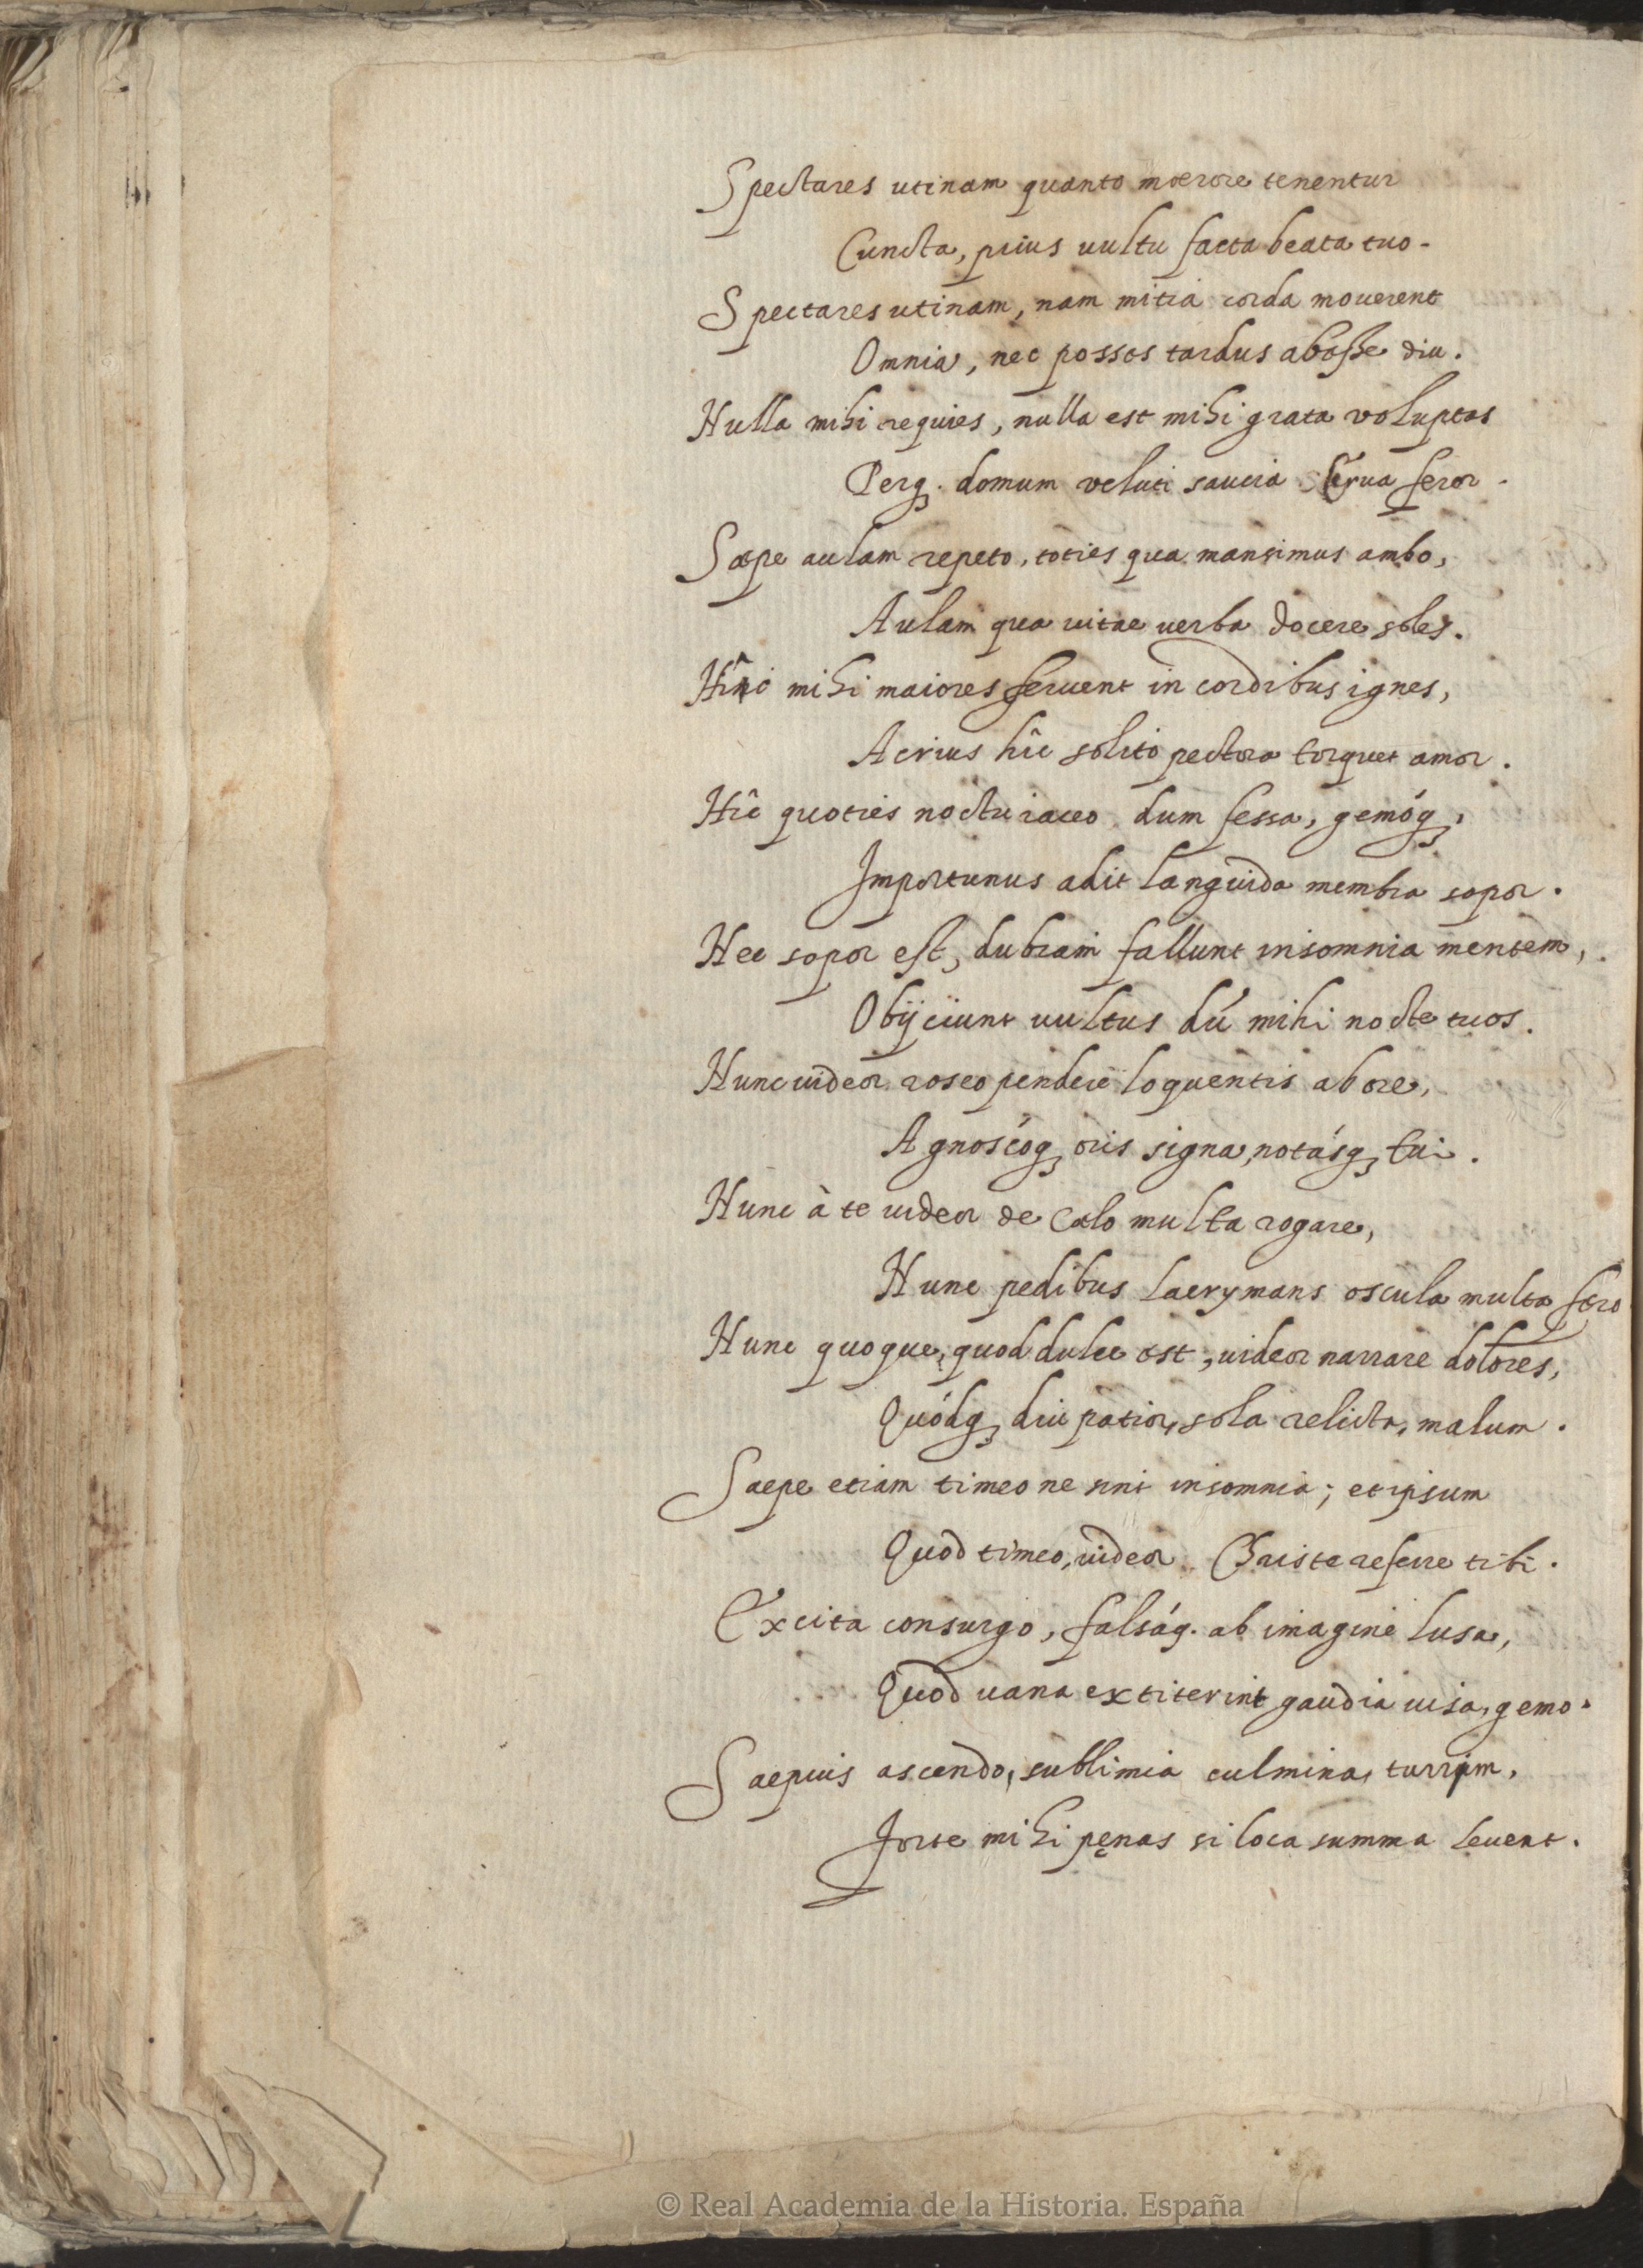 Spectares utinam quanto moerore tenentur
Cuncta, prius uultu facta beata tuo.
Spectares utinam, nam mitia corda mouerent
Omnia, nec posses tardus abesse diu.
Nulla mihi requies, nulla est mihi grata voluptas
Perq. domum veluti saucia cerua feror.
Sæpe aulam repeto, toties qua mansimus ambo,
Aulam qua uitae uerba docere soles.
Hîc mihi maiores feruent in cordibus ignes,
Acrius hîc solito pectora torquet amor.
Hîc quoties noctu iaceo dum fessa, gemóq;,
Importunus adit languida membra sopor.
Nec sopor est, dubiam fallunt insomnia mentem,
Obijciunt uultus dú mihi nocte tuos.
Nunc uideor roseo pendere loquentis ab ore,
Agnoscóq; oris signa, notásq; tui.
Nunc à te uideor de Cælo multa rogare,
Nunc pedibus lacrymans oscula multa fero
Nunc quoque, quod dulce est, uideor narrare dolores,
Quódq; diu patior, sola relicta, malum.
Saepe etiam timeo ne sint insomnia; et ipsum
Quod timeo, uideor Christe referre tibi.
Excita consurgo, falsáq. ab imagine lusa,
Quod uana extiterint gaudia uisa, gemo.
Saepius ascendo, sublimia culmina, turrim,
Forte mihi pęnas si loca summa leuent.
© Real Academia de la Historia. España